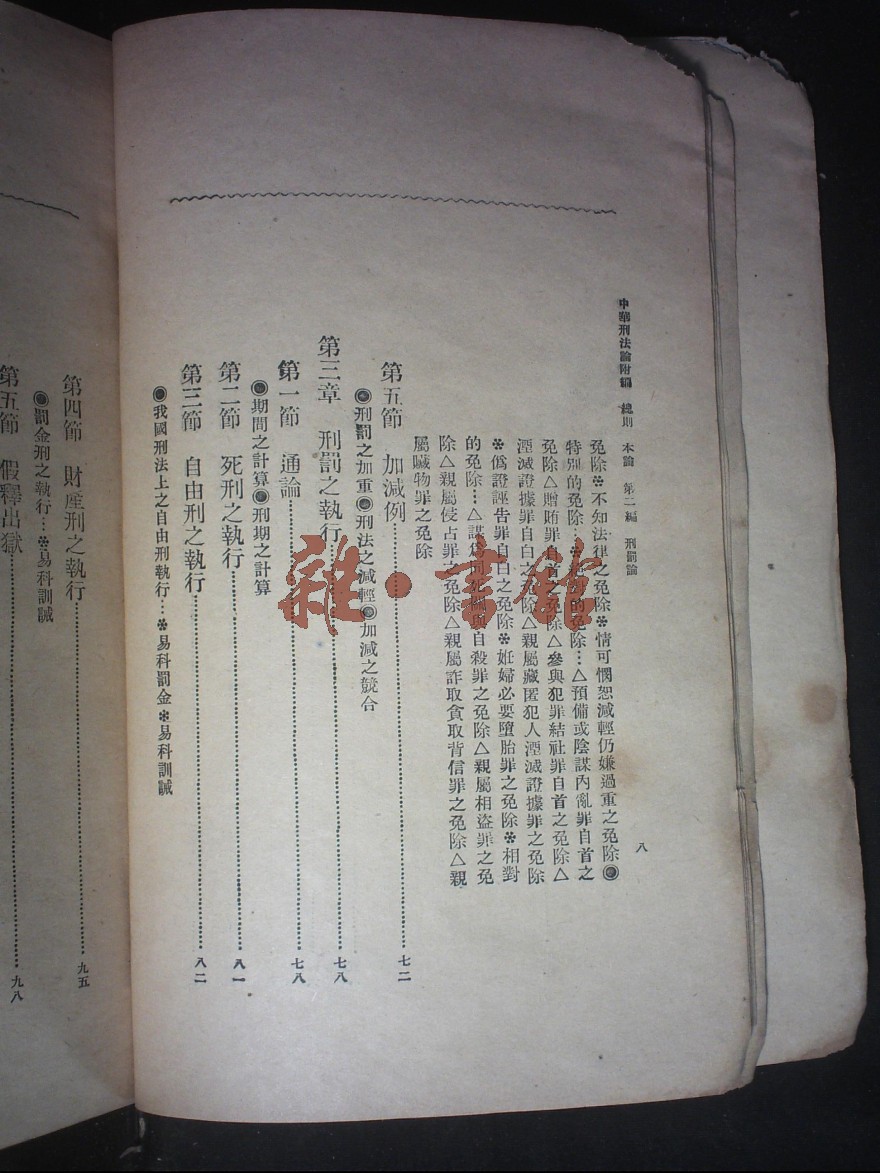 中華刑法論附編 總則 本論 第二編 刑罰論
八
免除※不知法律之免除※情可憫恕減輕仍嫌過重之免除◉
特別的免除…※的免除…△預備或陰謀內亂罪自首之
免除△贈賄罪自首之免除△參與犯罪結社罪自首之免除△
湮滅證據罪自白之免除△親屬藏匿犯人湮滅證據罪之免除
※僞證誣告罪自白之免除※妊婦必要墮胎罪之免除※相對
的免除…△謀爲同死自殺罪之免除△親屬相盜罪之免
除△親屬侵占罪之免除△親屬詐取貪取背信罪之免除△親
屬贓物罪之免除
第五節 加減例…七二
◉刑罰之加重◉刑法之減輕◉加減之競合
第三章 刑罰之執行…七八
第一節 通論…七八
◉期間之計算◉刑期之計算
第二節 死刑之執行…八一
第三節 自由刑之執行…八二
◉我國刑法上之自由刑執行…※易科罰金※易科訓誡
第四節 財產刑之執行…九五
◉罰金刑之執行…※易科訓誡
第五節 假釋出獄…九八
雜·書館